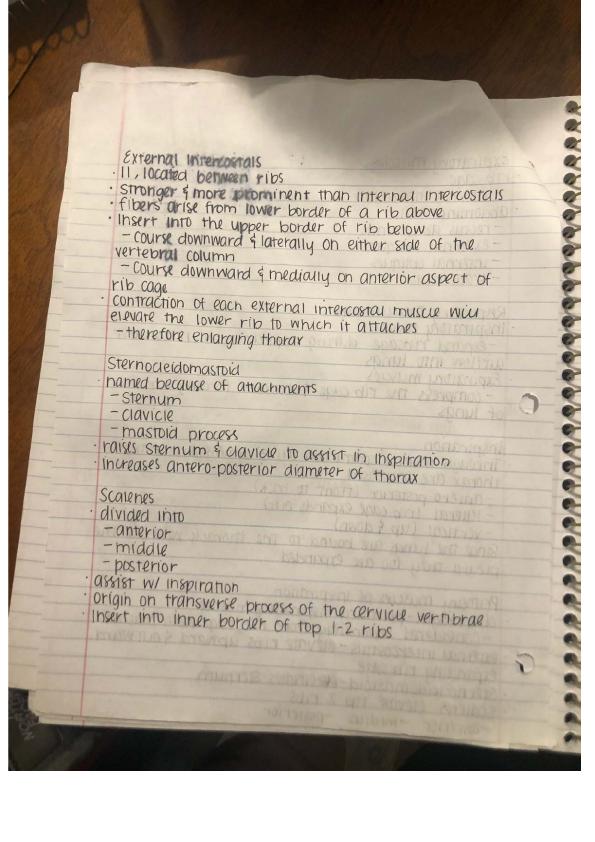 External Intercostals
· 11, located between ribs
· stronger & more prominent than internal intercostals
· fibers arise from lower border of a rib above
· Insert into the upper border of rib below
- Course downward & laterally on either side of the
vertebral column
- Course downward & medially on anterior aspect of
rib cage
· contraction of each external intercostal muscle will
elevate the lower rib to which it attaches
- therefore enlarging thorax
Sternocleidomastoid
· named because of attachments
- Sternum
- clavicle
- mastoid process
· raises sternum & clavicle to assist in inspiration
· increases antero-posterior diameter of thorax
Scalenes
· divided into
- anterior
- middle
- posterior
· assist w/ inspiration
· origin on transverse process of the cervicle vertibrae
· insert into inner border of top 1-2 ribs